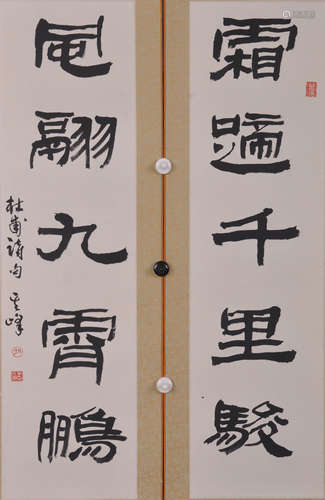 霜蹄千里駿
風翮九霄鵬
杜甫詩句 其峰